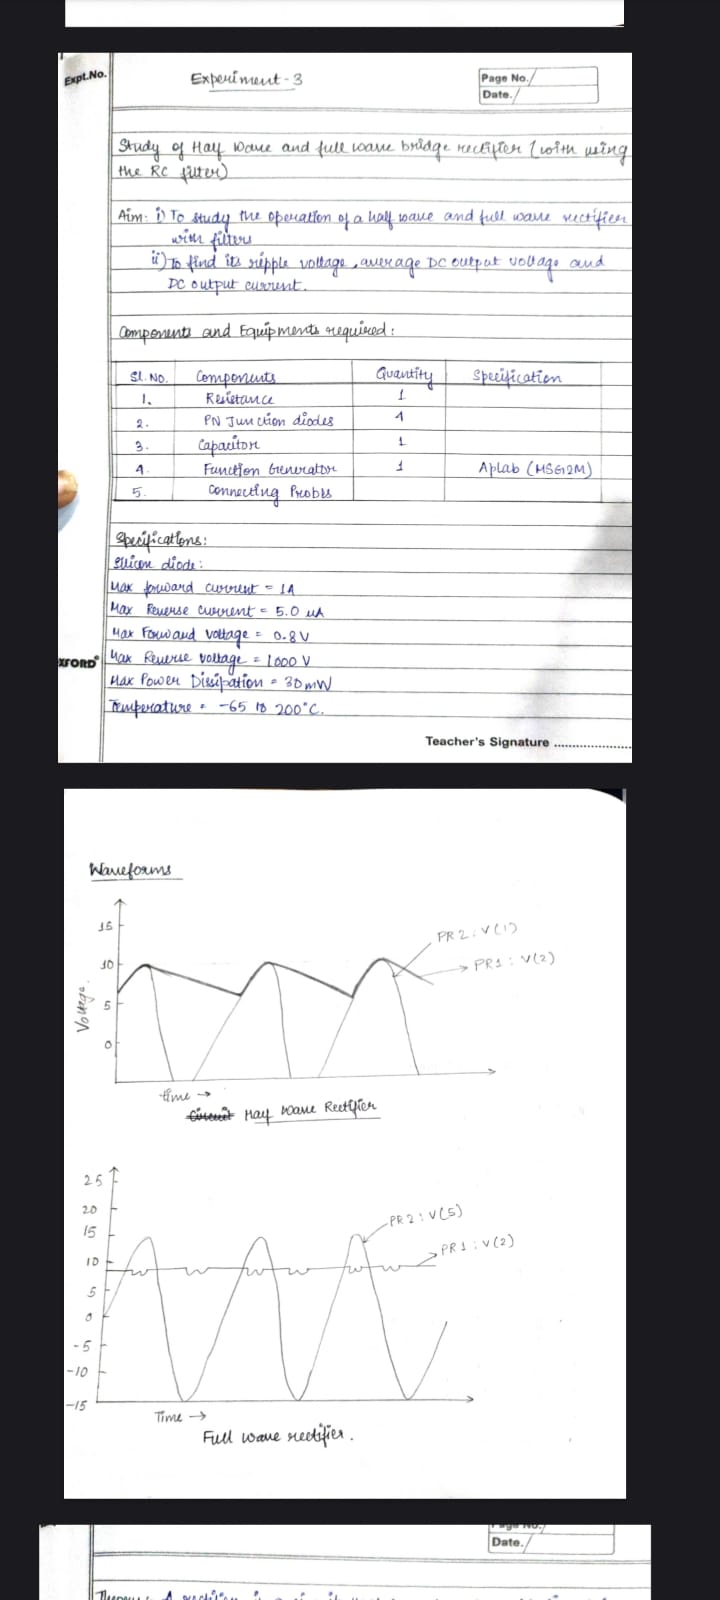 Expt.No.
Experiment - 3
Page No.
Date.
Study of Half Wave and full wave bridge rectifier (with using
the RC filter)
Aim: i) To study the operation of a half wave and full wave rectifier
with filters
ii) To find its ripple voltage, average DC output voltage and
DC output current.
Components and Equipments required:
Sl. No. Components Quantity Specification
1. Resistance 1
2. PN Junction diodes 4
3. Capacitor 1
4. Function Generator 1 Aplab (MSG12M)
5. Connecting Probes
Specifications:
Silicon diode:
Max forward current = 1A
Max Reverse current = 5.0 uA
Max Forward voltage = 0.8V
XFORD
Max Reverse voltage = 1000 V
Max Power Dissipation = 30mW
Temperature = -65 to 200°C.
Teacher's Signature ....................
Waveforms
15
PR2: V(1)
10
PR1: V(2)
5
Voltage
0
time →
Circuit Half Wave Rectifier
25
20
PR2: V(5)
15
PR1: V(2)
10
5
0
-5
-10
-15
Time →
Full wave rectifier.
Page No.
Date.